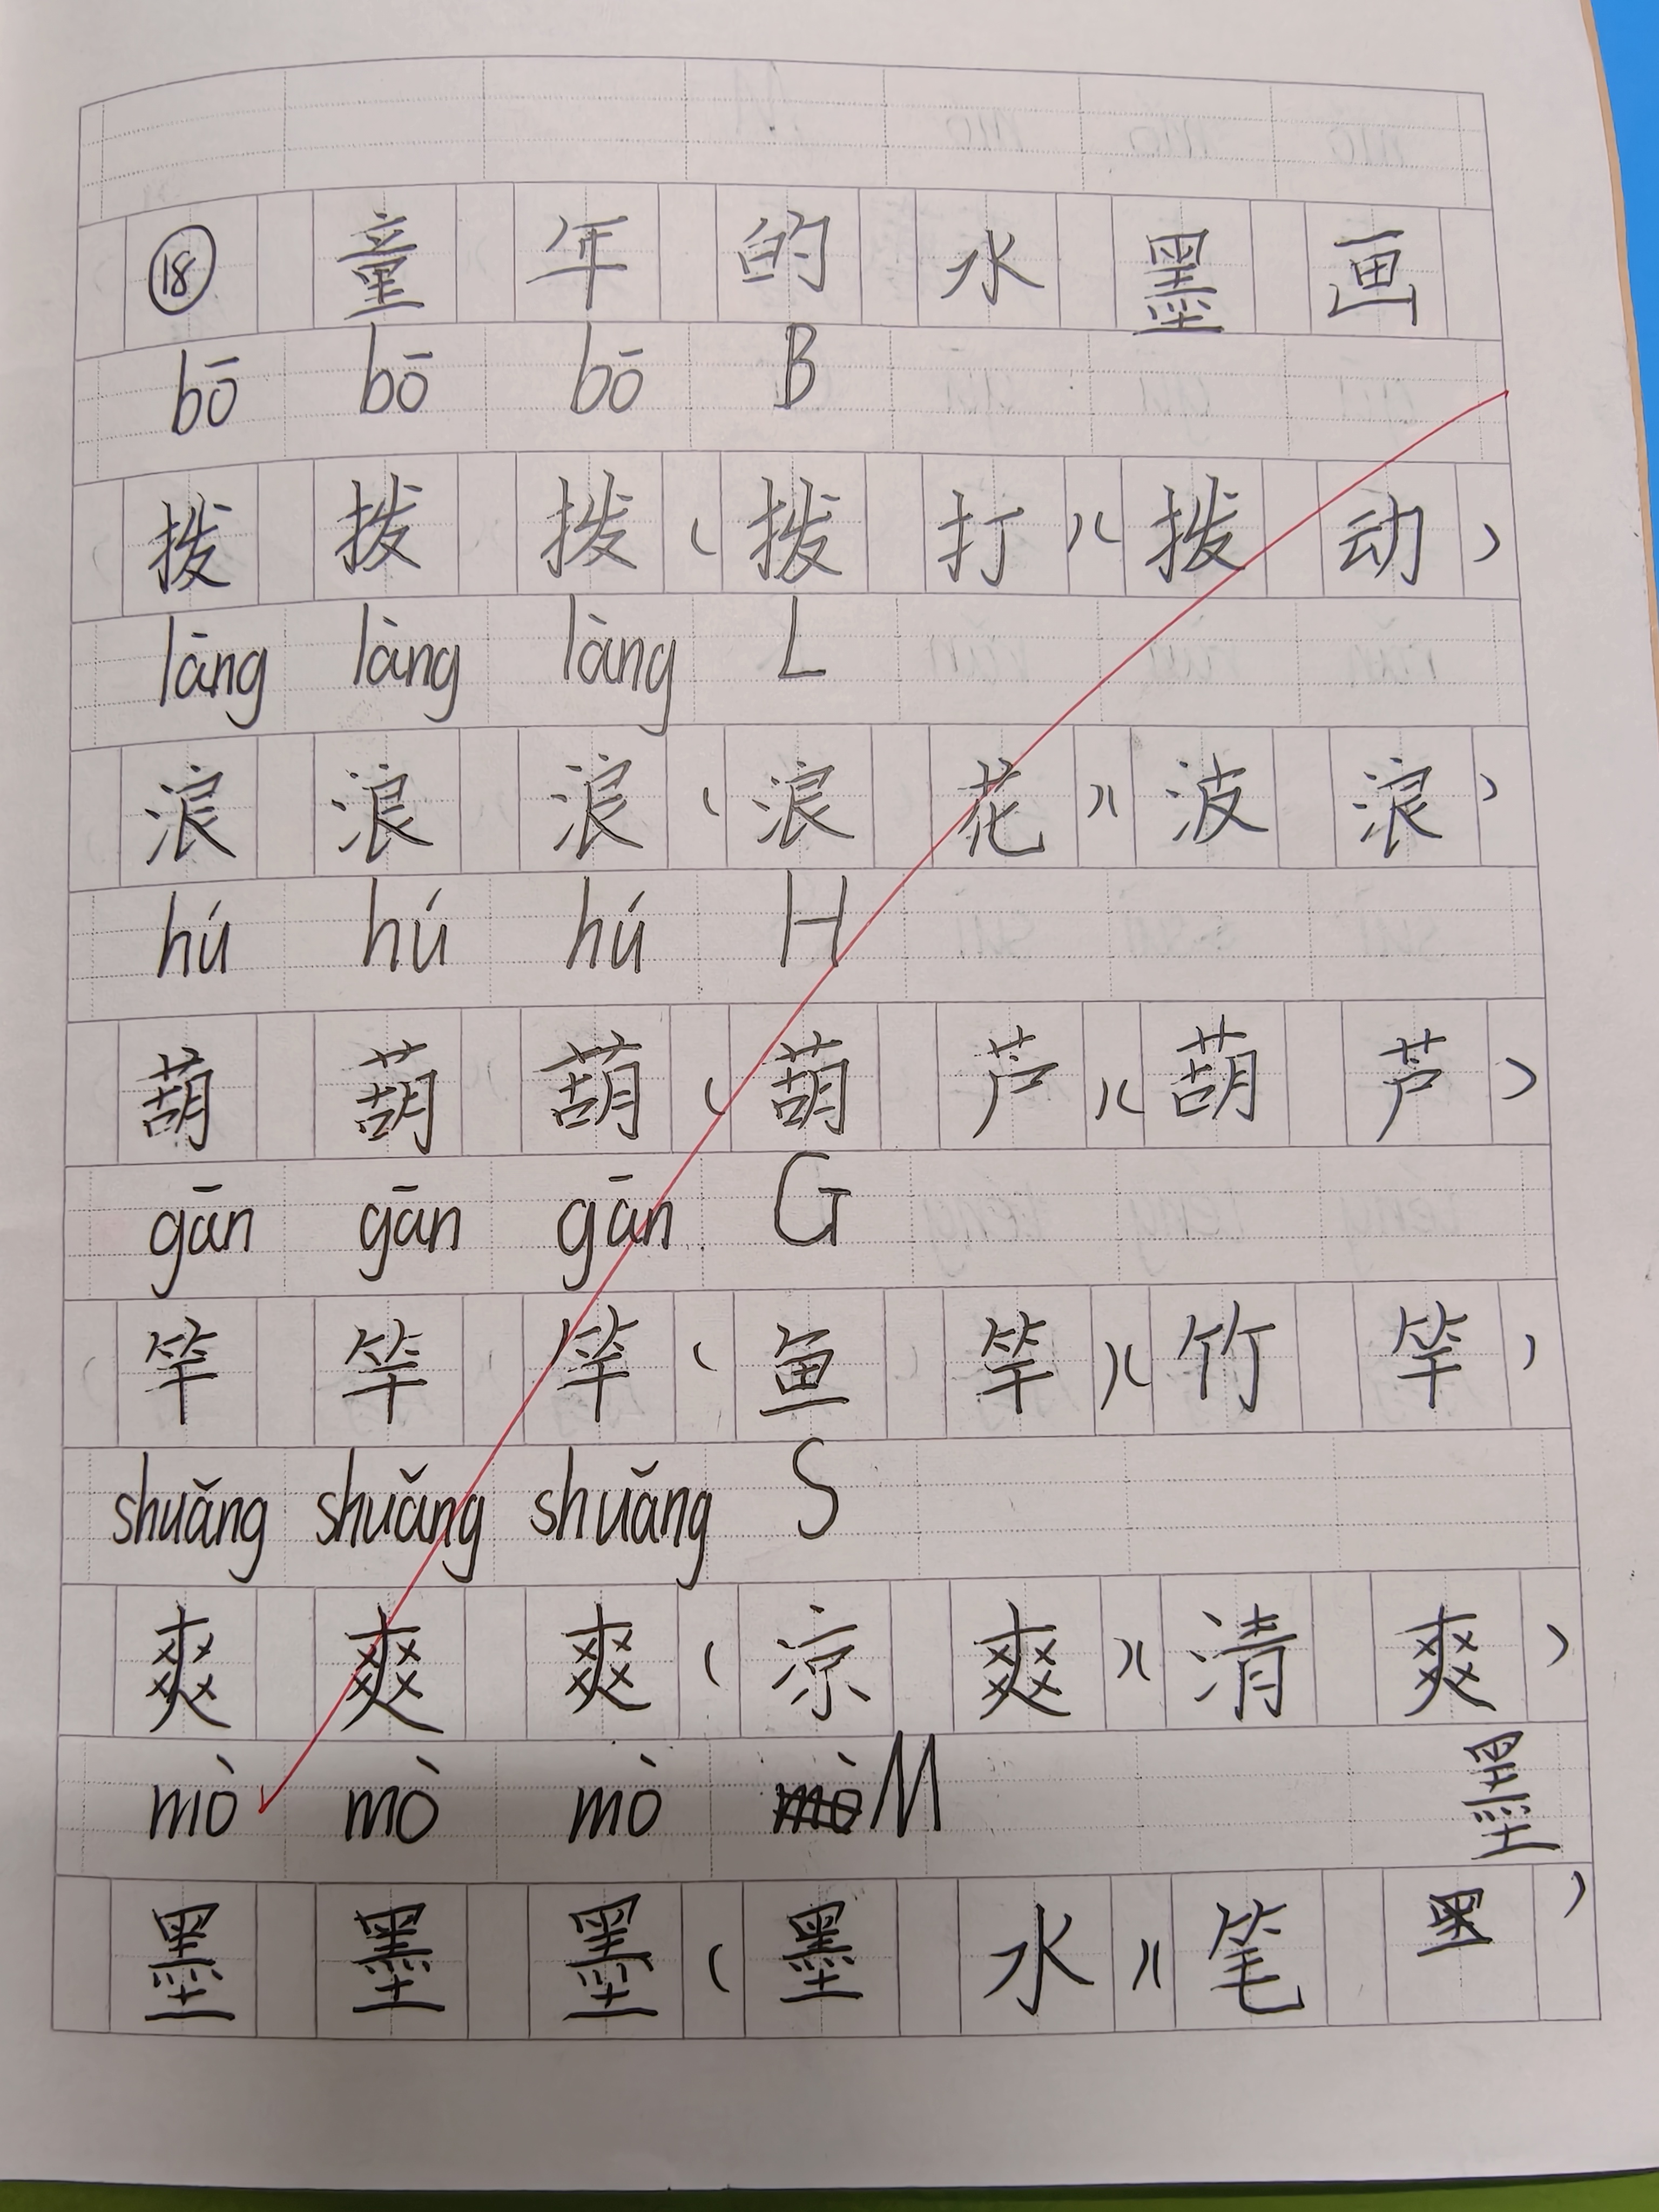 ⑱ 童年的水墨画
bō bō bō B
拨 拨 拨 (拨打)(拨动)
làng làng làng L
浪 浪 浪 (浪花)(波浪)
hú hú hú H
葫 葫 葫 (葫芦)(葫芦)
gān gān gān G
竿 竿 竿 (鱼竿)(竹竿)
shuǎng shuǎng shuǎng S
爽 爽 爽 (凉爽)(清爽)
mò mò mò mò M 墨
墨 墨 墨 (墨水)(笔 )